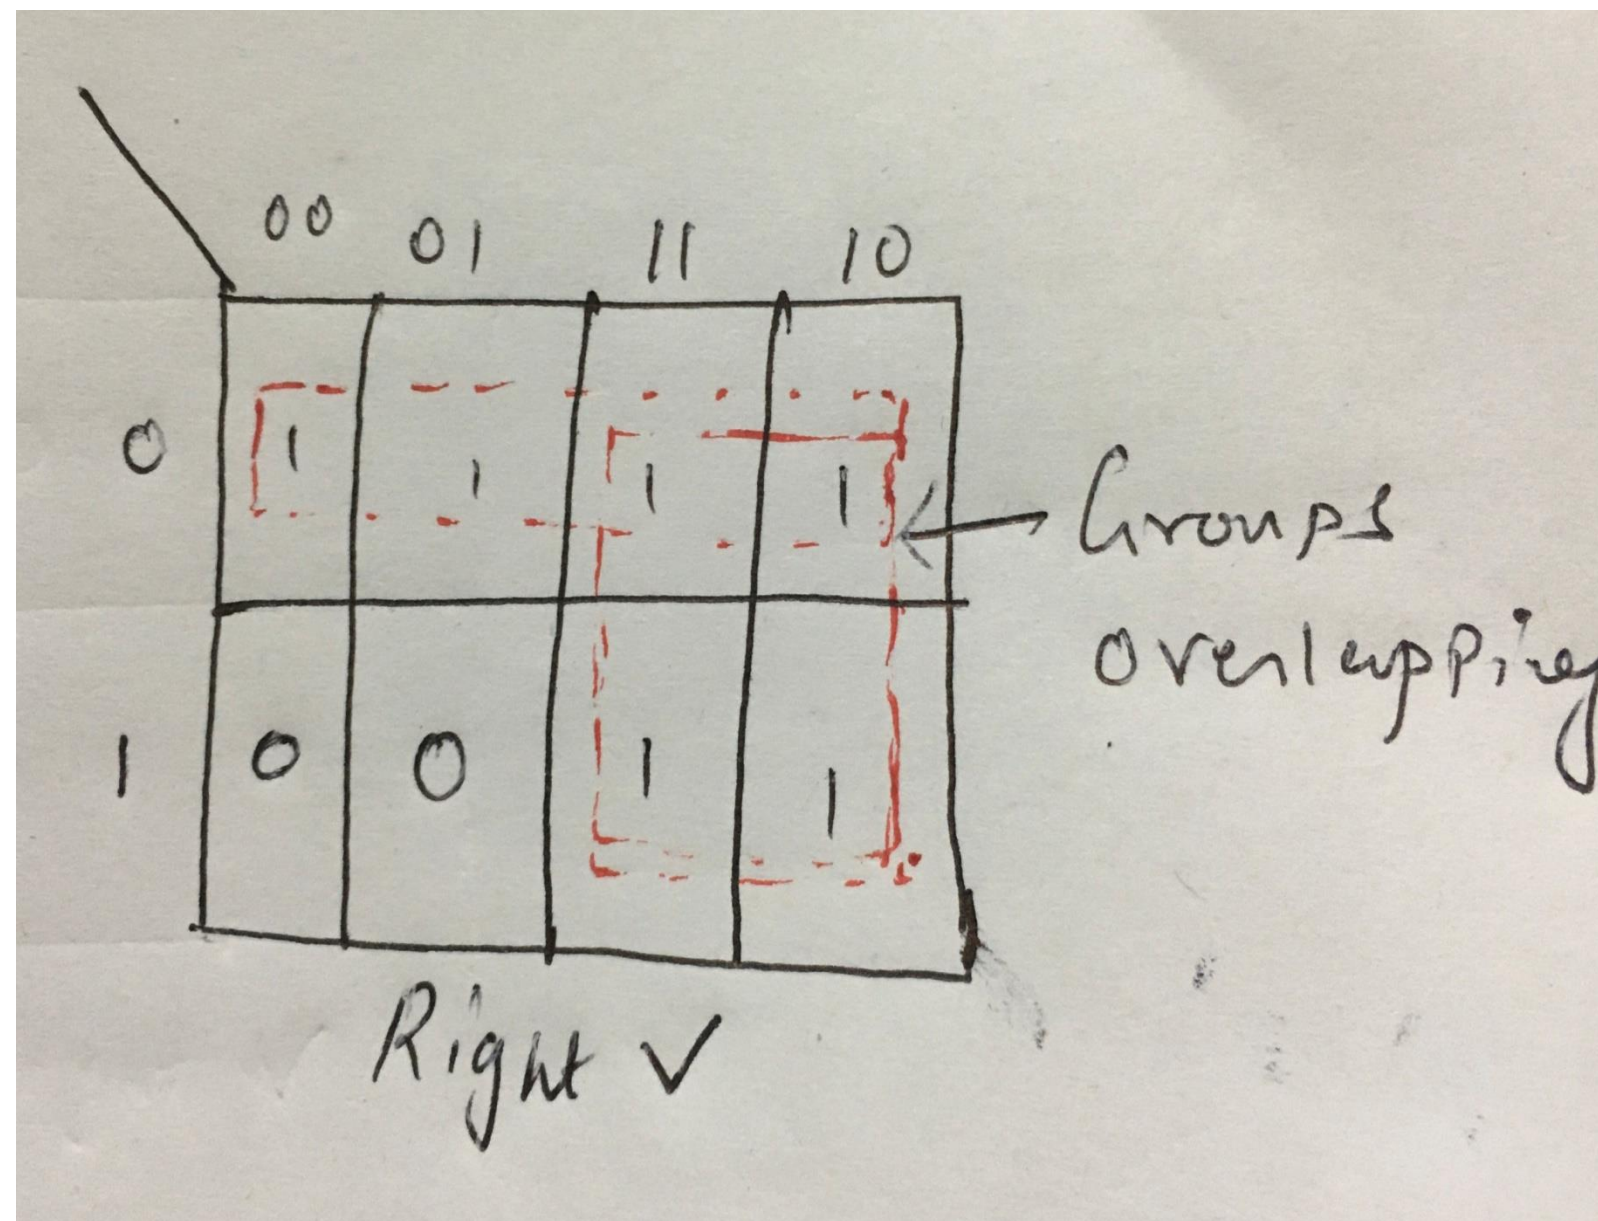 00 01 11 10
0 1 1 1 1
1 0 0 1 1
Groups
overlapping
Right ✓